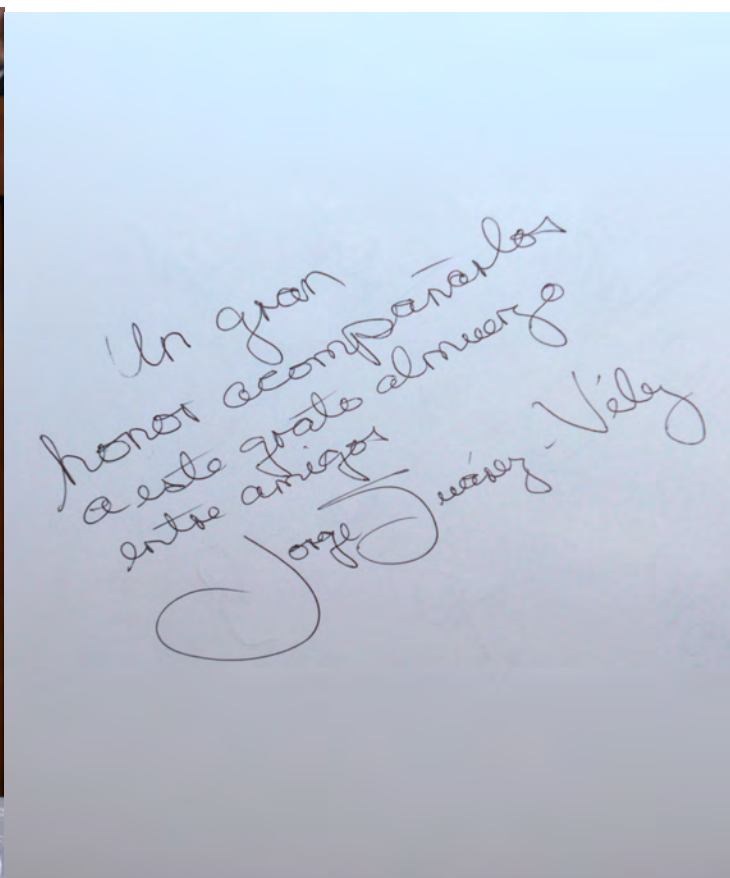 Un gran
honor acompañarlos
a este grato almuerzo
entre amigos
Jorge Juárez-Vélez